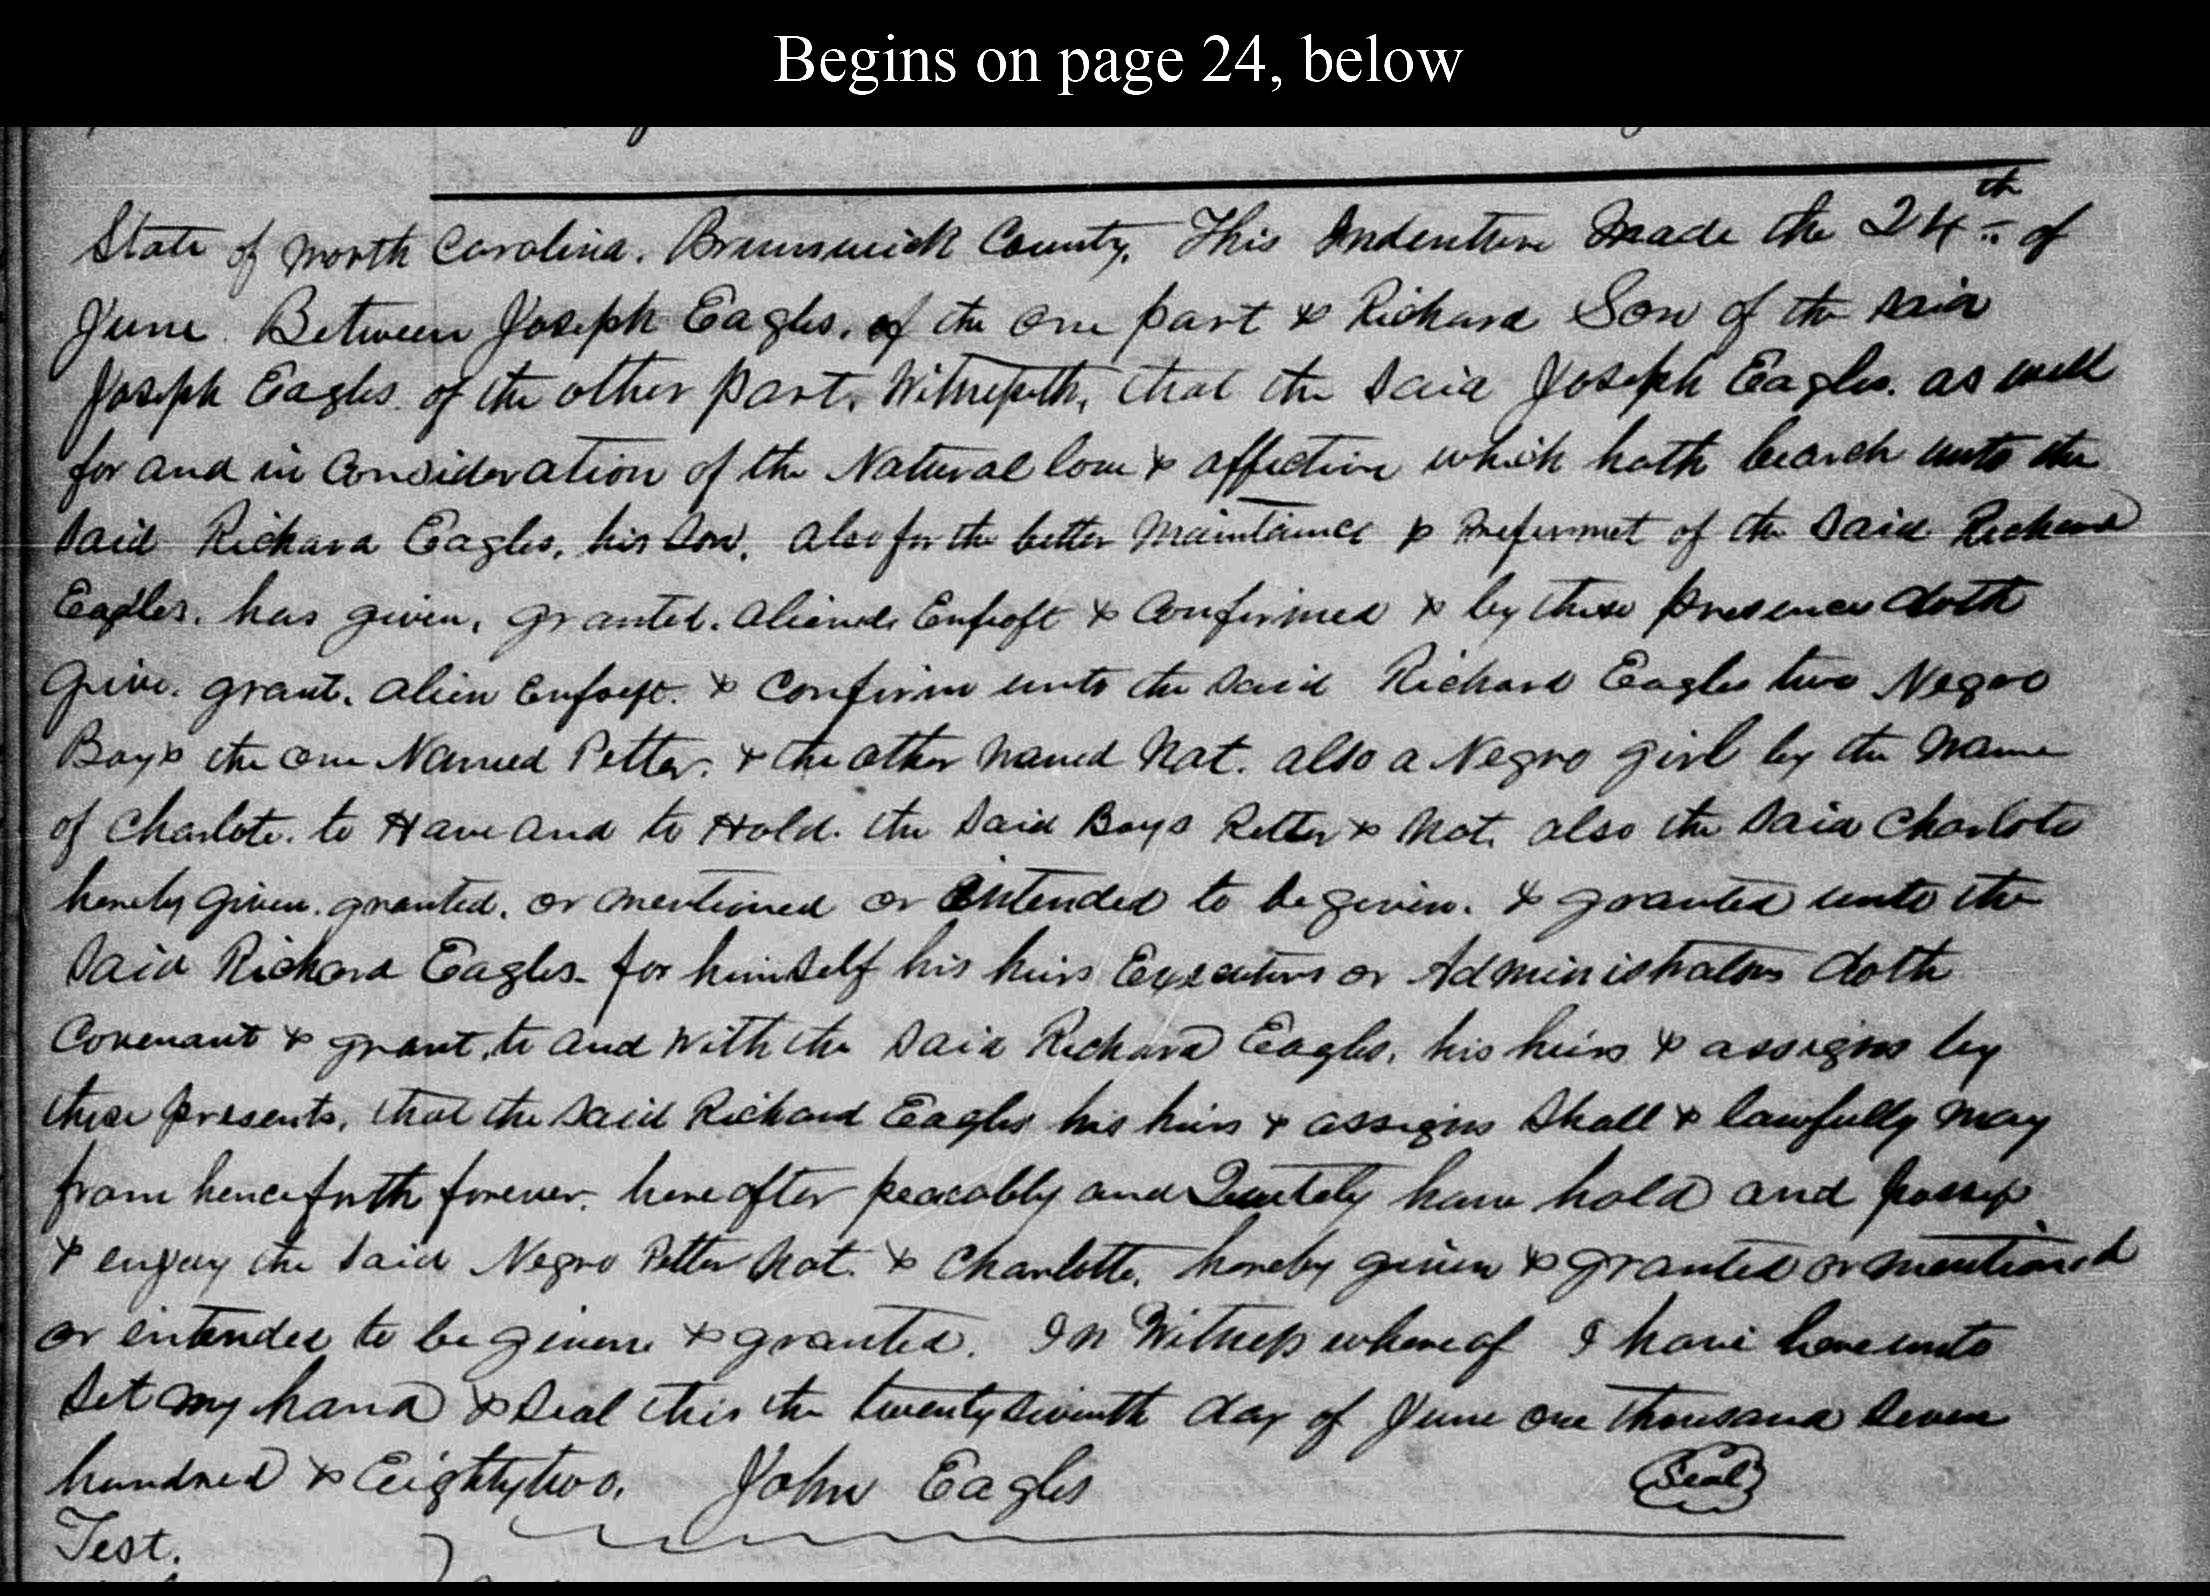 Begins on page 24, below
State of North Carolina. Brunswick County. This Indenture Made the 24th of
June. Between Joseph Eagles. of the one part & Richard Son of the said
Joseph Eagles. of the other part. Witnesseth, that the said Joseph Eagles. as well
for and in Consideration of the Natural love & affection which hath beareh unto the
said Richard Eagles, his son, also for the better Maintaince & Prefermet of the said Richard
Eagles. has given, granted. aliened. Enfeoft & Confirmed & by these presences doth
give. grant. alien Enfoeft. & Confirm unto the said Richard Eagles two Negro
Boys the one Named Petter. & the other named Nat. also a Negro girl by the name
of Charlote. to Have and to Hold. the said Boys Petter & Nat. also the said Charlote
hereby given. granted. or mentioned or intended to be given. & granted unto the
said Richard Eagles. for himself his heirs Executors or Administrators doth
Covenant & grant, to and with the said Richard Eagles, his heirs & assigns by
these presents, that the said Richard Eagles his heirs & assigns shall & lawfully may
from henceforth forever. hereafter peacably and have hold and possess
& enjoy the said Negro Petter Nat. & Charlotte. hereby given & granted or mentioned
or intended to be given & granted. In Witness whereof I have hereunto
set my hand & seal this the twenty seventh day of June one thousand seven
hundred & Eighty two. John Eagles Seal
Test.